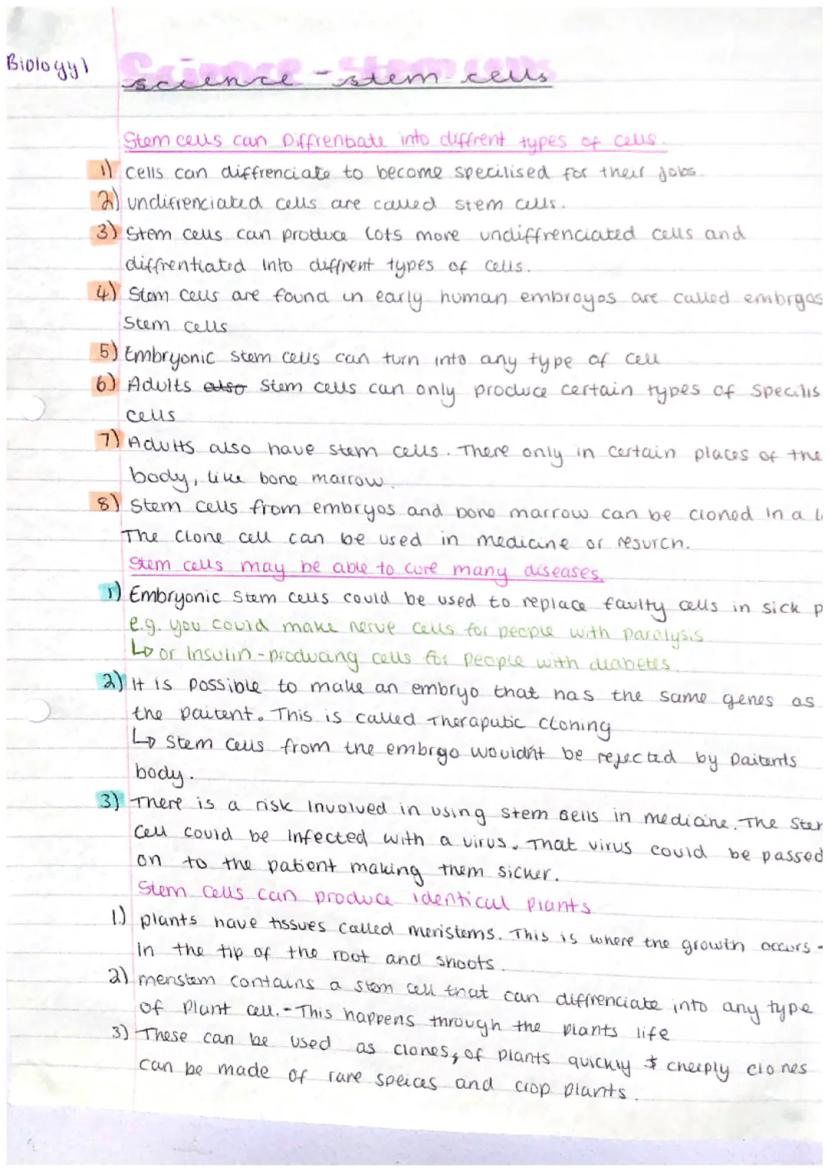 Biology 1
Science - Stem cells
science - stem cells
Stem cells can Diffrentiate into diffrent types of cells.
1) cells can diffrenciate to become specilised for their jobs.
2) undifrenciated cells are called stem cells.
3) Stem cells can produce lots more undiffrenciated cells and
diffrentiated into diffrent types of cells.
4) Stem cells are found in early human embroyos are called
Stem cells
5) Embryonic stem cells can turn into any type of cell
6) Adults also stem cells can only produce certain types of specilis
cells
7) Adults also have stem cells. There only in certain places of the
body, like bone marrow.
8) Stem cells from embryos and bone marrow can be cloned in a l
The clone cell can be used in medicine or resurch.
Stem cells may be able to cure many diseases.
1) Embryonic stem cells could be used to replace faulty cells in sick p
e.g. you could make nerve cells for people with paralysis
↳ or Insulin-producing cells for people with diabetes.
2) It is possible to make an embryo that has the same genes as
the paitent. This is called Theraputic cloning
↳ Stem cells from the embryo wouldn't be rejected by paitents
body.
3) There is a risk involved in using stem cells in medicine. The Ster
cell could be infected with a virus. That virus could be passed
on to the patient making them sicker.
Stem cells can produce identical plants
1.) plants have tissues called meristems. This is where the growth occurs -
in the tip of the root and shoots.
2) meristem contains a stem cell that can diffrenciate into any type
of plant cell. - This happens through the plants life
3) These can be used as clones, of plants quickly & cheaply clones
can be made of rare speices and crop plants.